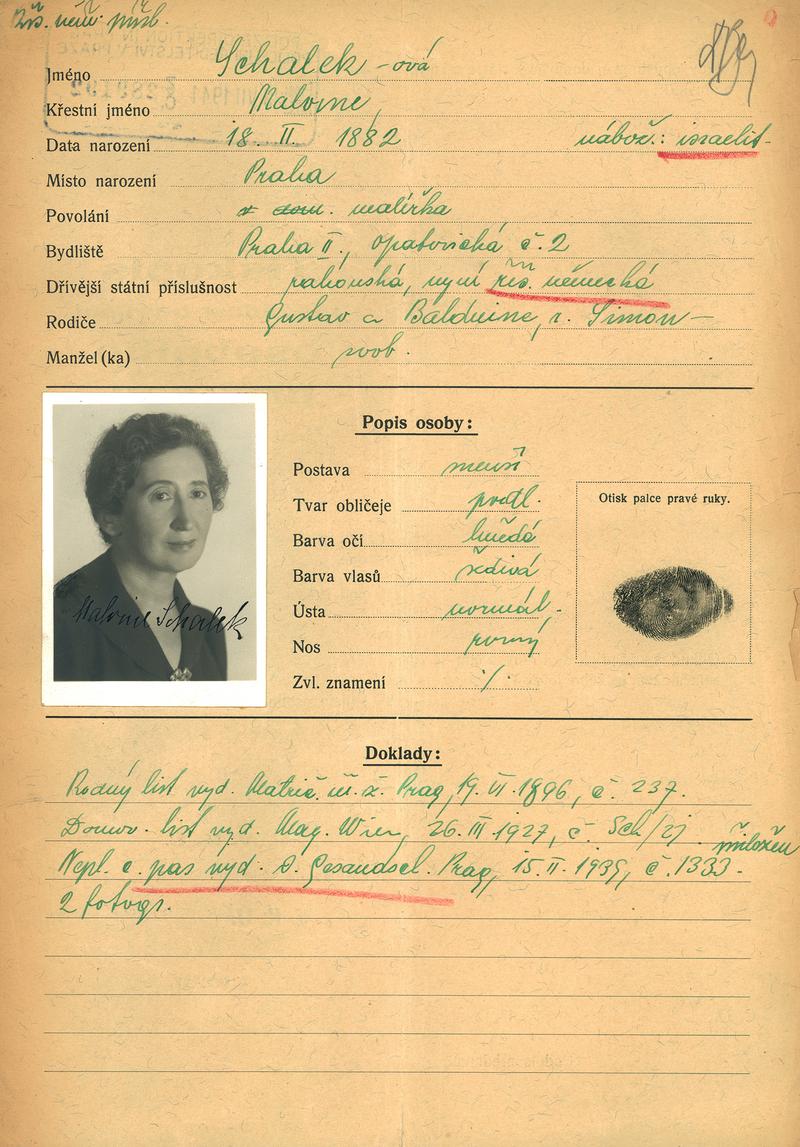 říš. něm. přísl.
Jméno Schalek -ová
Křestní jméno Malvine
Data narození 18. II. 1882 nábož.: israelit-
Místo narození Praha
Povolání dom. malířka
Bydliště Praha II., Opatovická č. 2
Dřívější státní příslušnost rakouská, nyní říš. německá
Rodiče Gustav a Balduine, r. Simon —
Manžel (ka) svob.
Popis osoby:
Postava menší
Tvar obličeje podl.
Barva očí hnědá
Barva vlasů šedivá
Ústa normál.
Nos rovný
Zvl. znamení ./.
Otisk palce pravé ruky.
Malvine Schalek
Doklady:
Rodný list vyd. Matrič. ú. ž. Prag, 19. VI. 1896, č. 237.
Domov. list vyd. Mag. Wien, 26. III. 1927, č. Sch/27 přiložen
Nepl. c. pas vyd. Prag, 15. II. 1935, č. 1333.
2 fotogr.